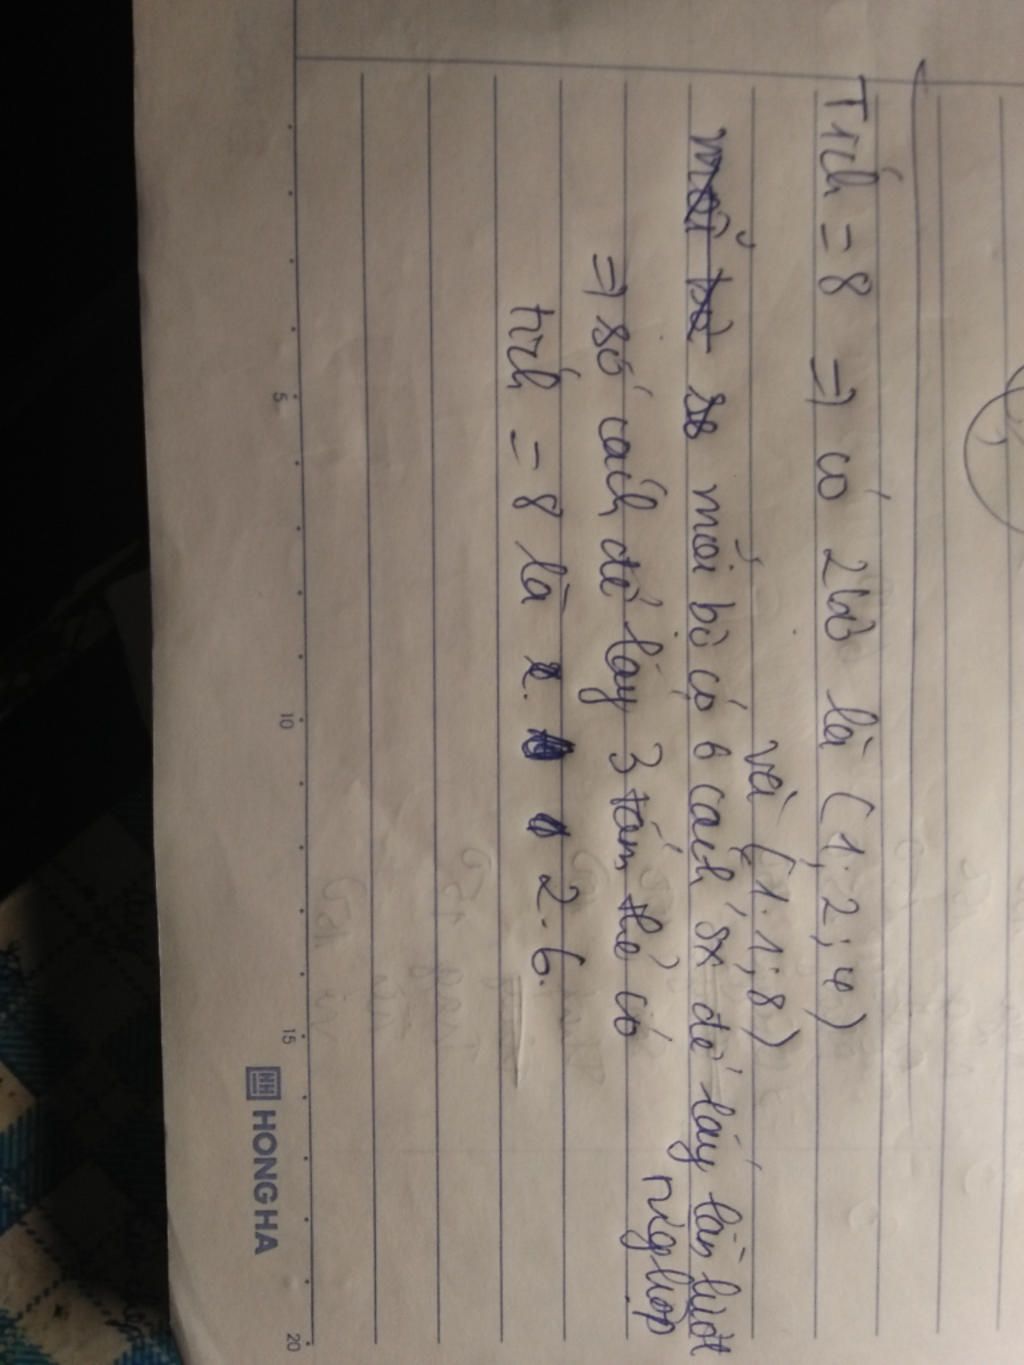 Tích = 8 => có 2 bộ là (1; 2; 4)
và (1; 1; 8)
mỗi bộ số mỗi bộ có 6 cách sx để lấy lần lượt
=> số cách để lấy 3 tấm thẻ có
tích = 8 là 2. 2.6.
5
10
15
20
HONG HA